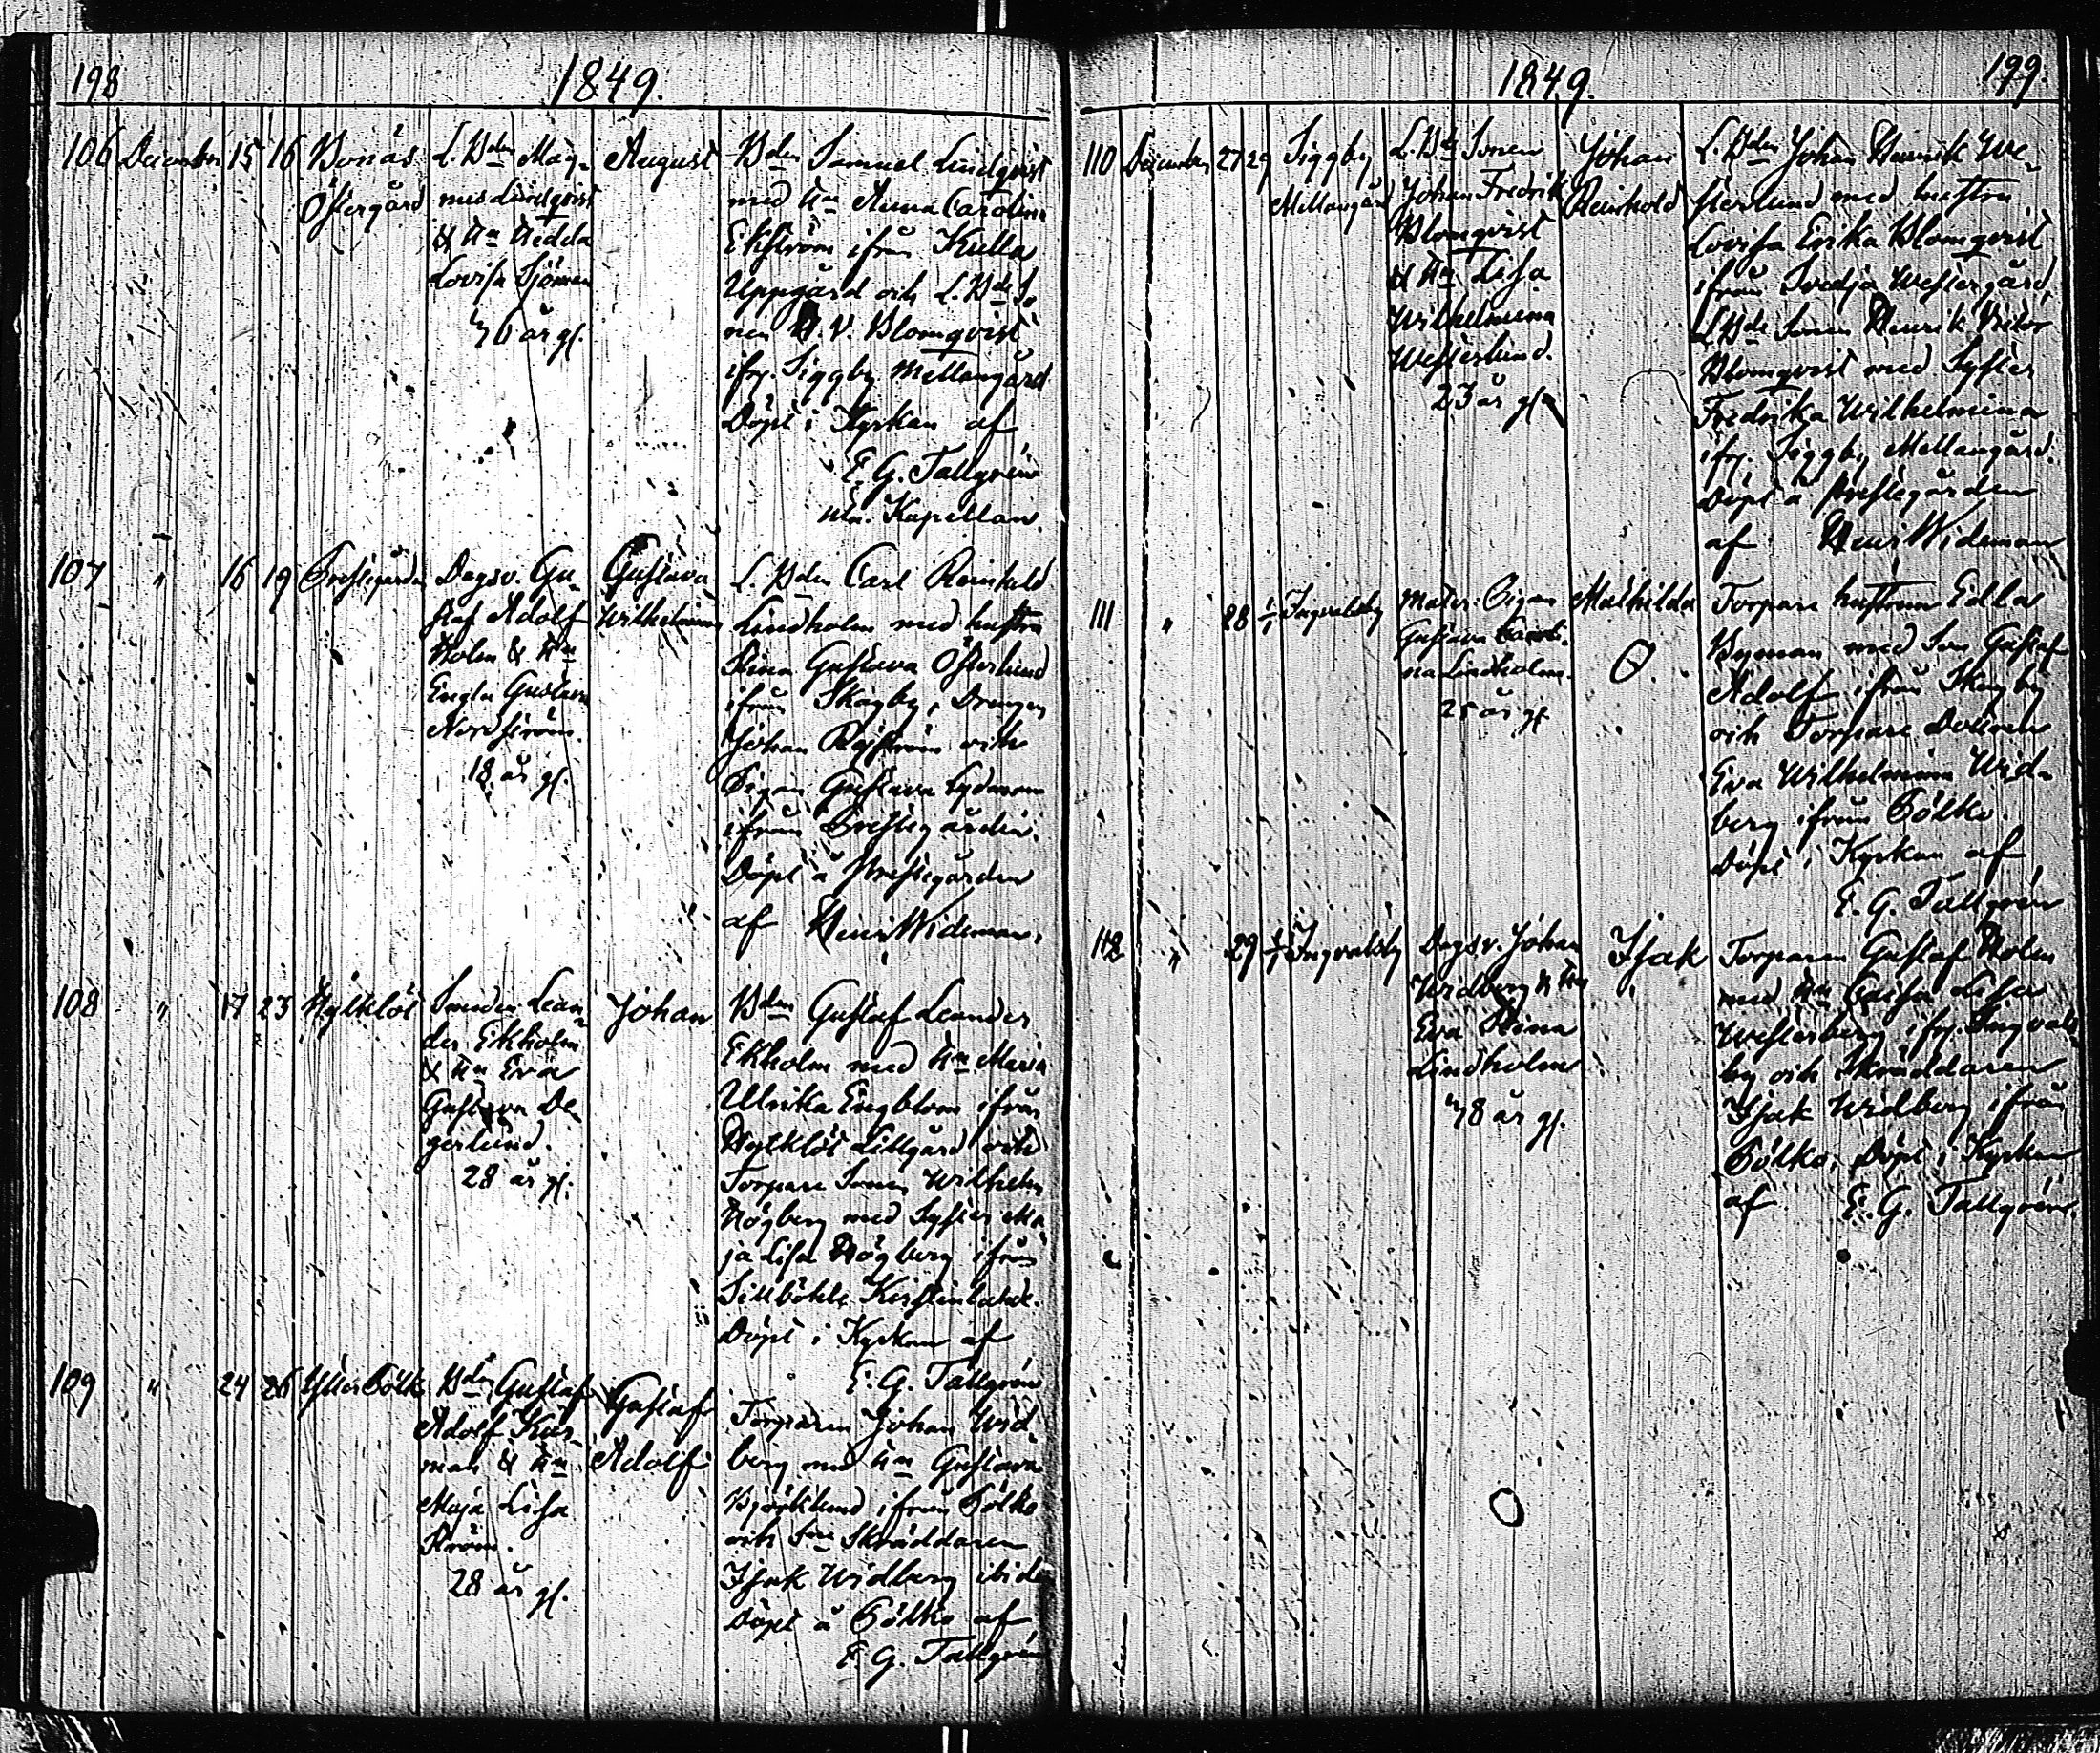 198
1849.
106 December 15 16 Bonäs Östergård
L. Bden Mag-
nus Lindqvist
& Hn Hedda
Lovisa Sjöman
46 år gl.
August
Bden Samuel Lindqvist
med Hn Anna Carolina
Ekström ifrån Kulla
Uppgård och L. Bde So-
nen H. V. Blomqvist
ifr. Siggby Mellangård
Döpt i Kyrkan af
E. G. Tallgrén
Kapellan.
107 " 16 19 Prestegården
Dagsv. Gu-
staf Adolf
Holm & Hn
Engla Gustava
Nordström.
18 år gl.
Gustava
Wilhelmina
L. Bden Carl Reinhold
Lindholm med hustru
Stina Gustava Österlund
ifrån Skogby, Drengen
Johan
Pigan Gustava
ifrån Prestegården.
Döpt å Prestegården
af Henr Wideman.
108 " 17 23 Hylklöt
Smeden Lean-
der Ekholm
& Hn Eva
Gustava De-
gerlund.
28 år gl.
Johan
Bden Gustaf Leander
Ekholm med Hn Maria
Ulrika Engblom ifrån
Hylklöt Lillgård och
Torpare Sonen Wilhelm
Högberg med Syster Ma-
ja Lisa Högberg ifrån
Sillböhle
Döpt i Kyrkan af
E. G. Tallgrén
109 " 24 26 Ytter Böle
Bden Gustaf
Adolf
man & Hn
Maja Lisa
Ström.
28 år gl.
Gustaf
Adolf
Torparen Johan Wid-
berg med Hn Gustava
Björklund ifrån Fölks
och Skräddaren
Isak Widberg ibid.
Döpt å af
E. G. Tallgrén
1849.
199.
110 December 27 29 Siggby Mellangård
L. Bde Sonen
Johan Fredrik
Blomqvist
& Hn Lisa
Wilhelmina
Westerlund.
23 år gl.
Johan
Reinhold
L. Bden Johan Henrik We-
sterlund med hustru
Lovisa Erika Blomqvist
ifrån Svedja Westergård,
L. Bde Sonen Henrik Victor
Blomqvist med Syster
Fredrika Wilhelmina
ifr. Siggby Mellangård.
Döpt å Prestegården
af Henr Wideman
111 " 28 1/1 Ingvalsby
Mater: Pigan
Gustava Caroli-
na Lindholm.
25 år gl.
Mathilda
O.
Torpare hustrun Edla
Byman med Son Gustaf
Adolf ifrån Skogby
och Torpare Dottren
Eva Wilhelmina Wid-
berg ifrån
Döpt i Kyrkan af
E. G. Tallgrén
112 " 29 1/1 Ingvalsby
Dagsv. Johan
Widberg & Hn
Eva Stina
Lindholm
48 år gl.
Isak
Torparen Gustaf Holm
med Hn Caisa Lisa
Westerberg ifr. Ingvals-
by och Skräddaren
Isak Widberg ifrån
Döpt i Kyrkan
af E. G. Tallgrén.